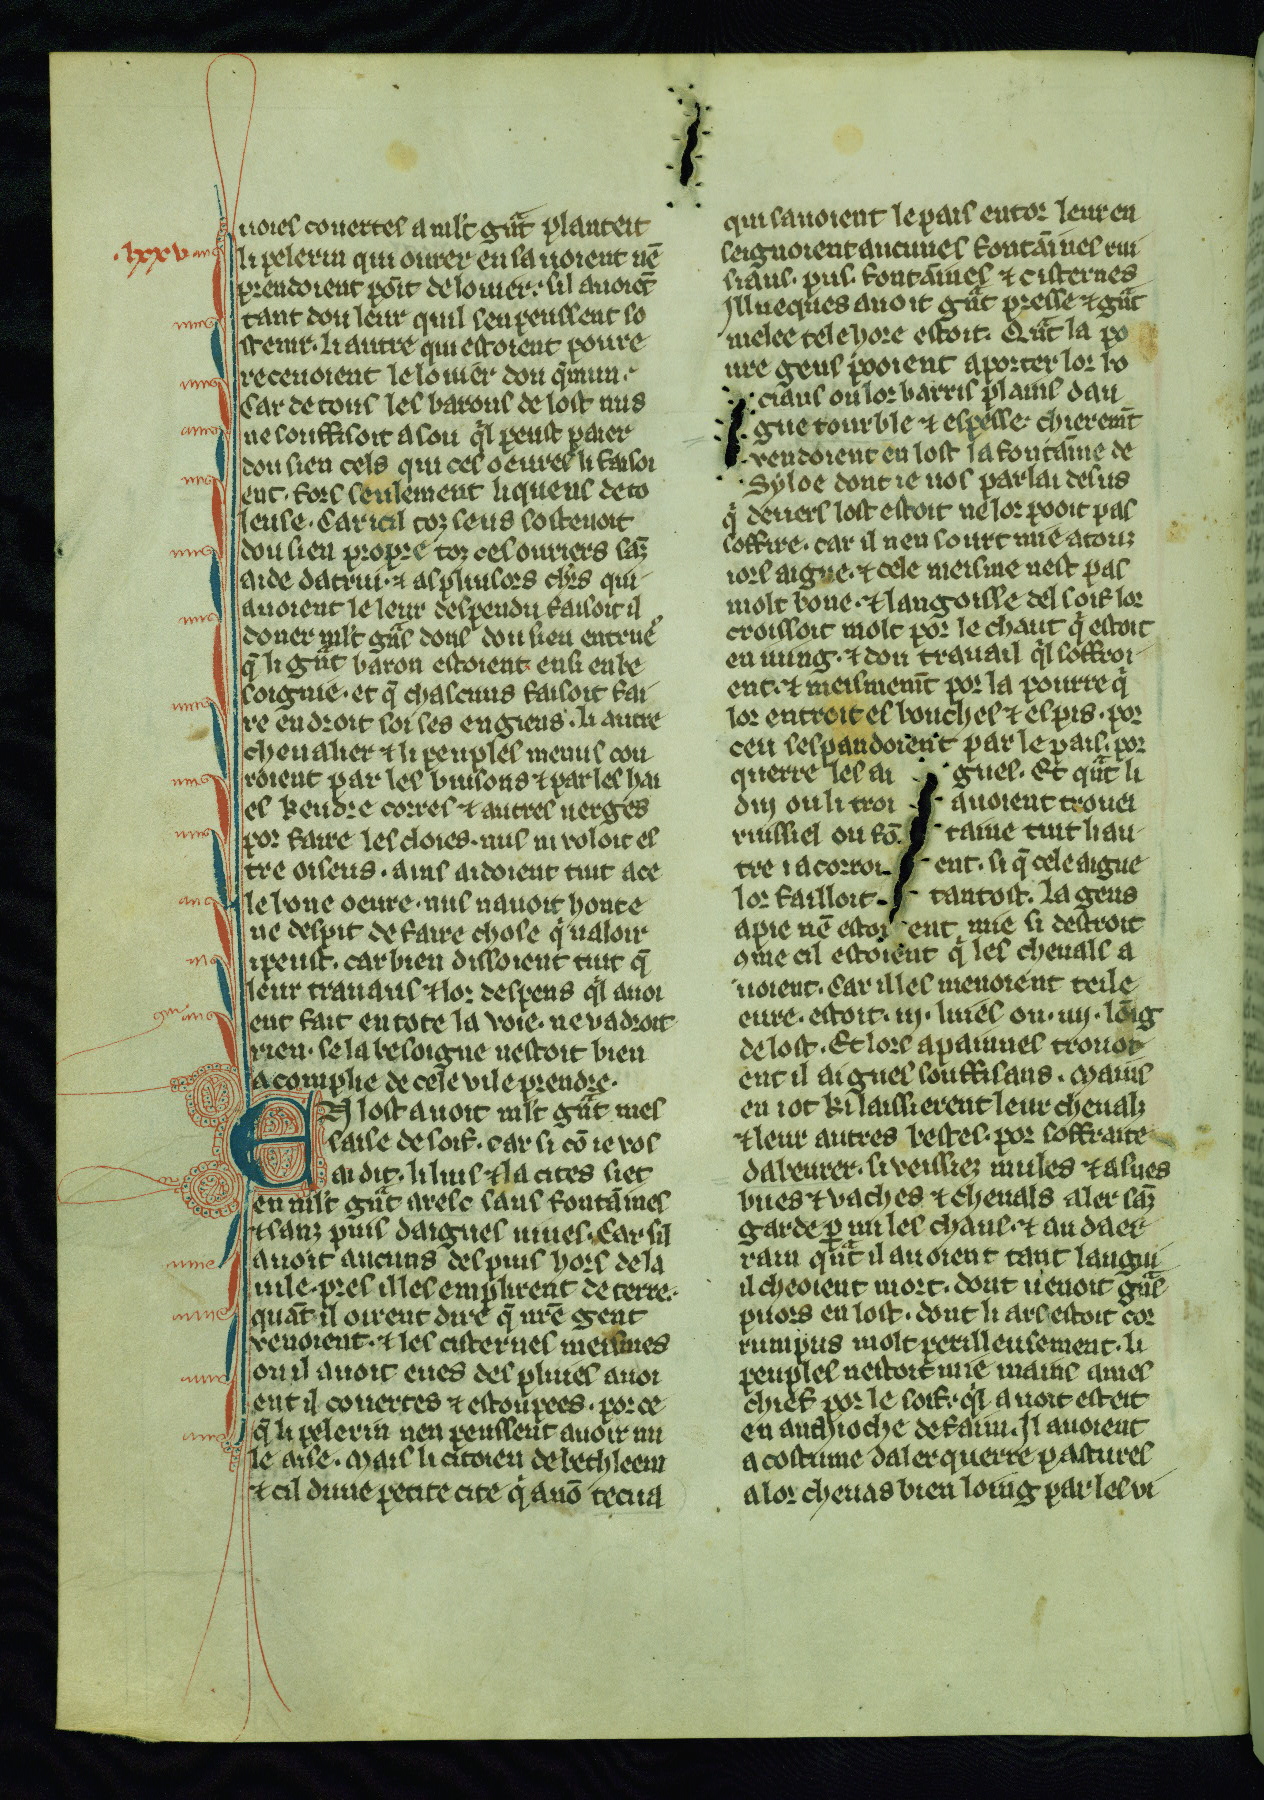 .lxxv.
uoies couertes a mlt' gñt planteit
li pelerin qui ourer en sauoient nẽ
prendoient põit de louier. sil auoiẽt
tant dou leur quil sen peussent so
stenir. li autre qui estoient poure
receuoient le louier dou q̃mun.
Car de tous les barons de lost nus
ne souffisoit a sou q̃l peust paier
dou sien cels qui ces oeures li faisoi
ent. fors seulement li quens de to
leuse. Car icil toz seus sostenoit
dou sien propre toz ces ouriers sãz
aide datrui. ⁊ as plusors chr̃s qui
auoient le leur despendu faisoit il
doner mlt' gñs dons dou sien entrue
q̃ li gñt baron estoient ensi enbe
soignie. et q̃ chascuns faisoit fai
re endroit soi ses engiens. li autre
cheualier ⁊ li peuples menus cou
roient par les buisons ⁊ par les hai
es kendre corres ⁊ autres uerges
por faire les cloies. nus ni voloit es
tre oiseus. ains aidoient tuit a ce
le bone oeure. nus nauoit honte
ne despit de faire chose q̃ ualoir
i peust. car bien dissoient tuit q̃
leur trauaus ⁊ lor despens q̃l auoi
ent fait en tote la voie. ne vadroit
rien. se la besoigne nestoit bien
acomplie de cele vile prendre.
EN lost auoit mlt' gñt mes
saise de soif. car si cõ ie vos
ai dit. li lius ⁊ la cites siet
en mlt' gñt aresc sans fontaines
⁊ sanz puis daigues uiues. Car sil
auoit aucuns des puis hors de la
uile. pres il les emplirent de terre.
quãt il oirent dire q̃ nr̃e gent
venoient. ⁊ les cisternes meismes
ou il auoit eues des pluies auoi
ent il couertes ⁊ estoupees. por ce
q̃ li pelerin nen peussent auoir nu
le aise. Mais li citoien de bethleem
⁊ cil dune petite cite q̃ auõ tecua
qui sauoient le pais entor leur en
seignoient aucunes fontaines rui
siaus. puis. fontaines ⁊ cisternes
Illueques auoit gñt presse ⁊ gñt
melee tele hore estoit. Qñt la po
ure gens pooient aporter lor bo
ciaus ou lor barris plains dau
gue tourble ⁊ espesse. chieremẽt
vendoient en lost la fontaine de
Syloe dont ie uos parlai desus
q̃ deuers lost estoit ne lor pooit pas
soffire. car il nen sourt mie a touz
iors aigue. ⁊ cele meisme nest pas
molt bone. ⁊ langoisse del soif lor
croissoit molt por le chaut q̃ estoit
en iuing. ⁊ dou trauail q̃l soffroi
ent. ⁊ meismemẽt por la pourre q̃
lor entroit es bouches ⁊ es pis. por
ceu sespandoient par le pais. por
querre les ai gues. Et qñt li
dui ou li troi auoient trouei
ruissiel ou fõ taine tuit li au
tre i acorroi ent. si q̃ cele aigue
lor failloit tantost. la gens
a pie nẽ estoi ent mie si destroit
9me cil estoient q̃ les cheuals a
uoient. Car il les menoient teile
eure. estoit. iij. luies ou. iiij. lõig
de lost. Et lors a paimnes trouoi
ent il aigues souffisans. Mains
en i ot ki laissierent leur cheualz
⁊ leur autres bestes. por soffraite
dabeurer. si veissiez mules ⁊ asnes
bues ⁊ vaches ⁊ cheuals aler sãz
garde p̱ mi les chans. ⁊ au daer
rain qñt il auoient tant langui
il cheoient mort. dont uenoit gñs
puors en lost. dont li ars estoit cor
rumpus molt perilleusement. li
peuples nestoit mie mains a mes
chief por le soif. q̃l auoit esteit
en anthioche de faim. Il auoient
acostume daler querre pastures
a lor cheuas bien loing par les vi